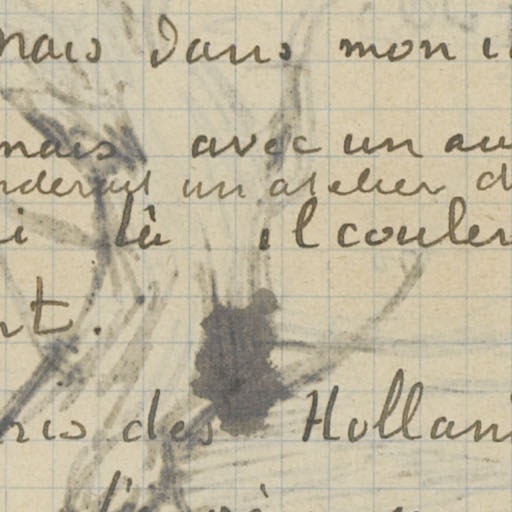 mais dans mon
mais avec un au
nderait un atelier d
i là il couler
nt.
ris des Hollan